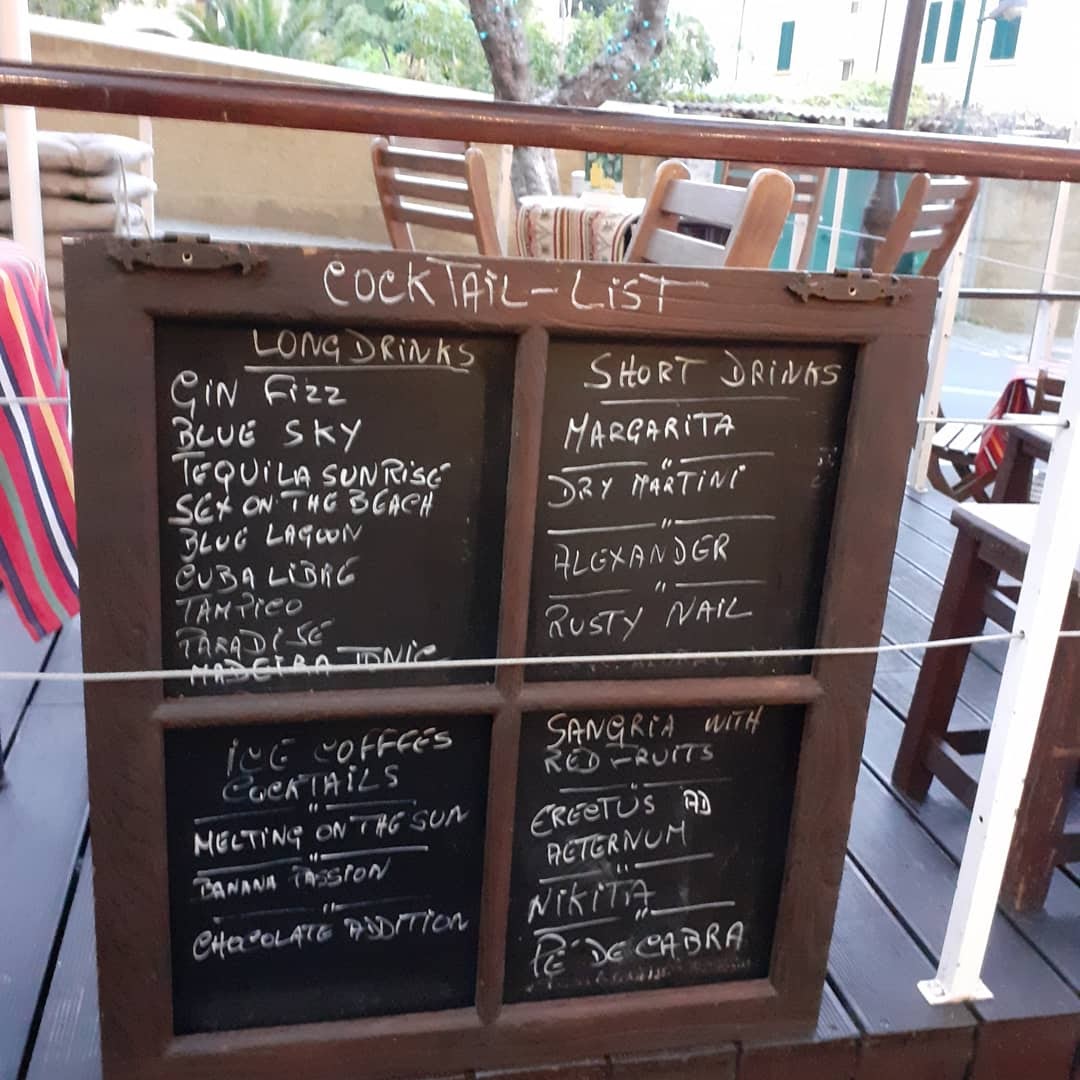 COCKTAIL-LIST
LONG DRINKS
GIN FIZZ
BLUE SKY
TEQUILA SUNRISE
SEX ON THE BEACH
BLUE LAGOON
CUBA LIBRE
TAMPICO
PARADISE
MADEIRA TONIC
SHORT DRINKS
MARGARITA
"
DRY MARTINI
"
ALEXANDER
"
RUSTY NAIL
ICE COFFEES
COCKTAILS
"
MELTING ON THE SUN
"
BANANA PASSION
"
CHOCOLATE ADDITION
SANGRIA WITH
RED FRUITS
"
ERECTUS AD
AETERNUM
"
NIKITA
"
PÉ DE CABRA